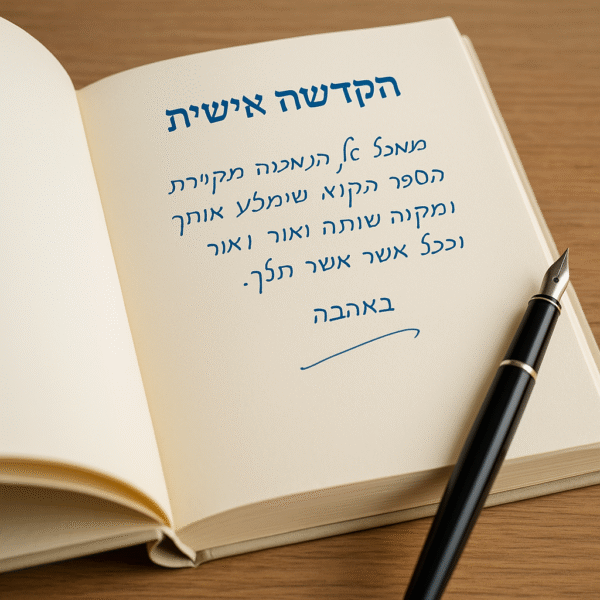 הקדשה אישית
מאכל אל, הנאכוה מקוירת
הספר הקוא שימלע אותך
ומקוה שותה ואור ואור
וככל אשר אשר תלך.
באהבה